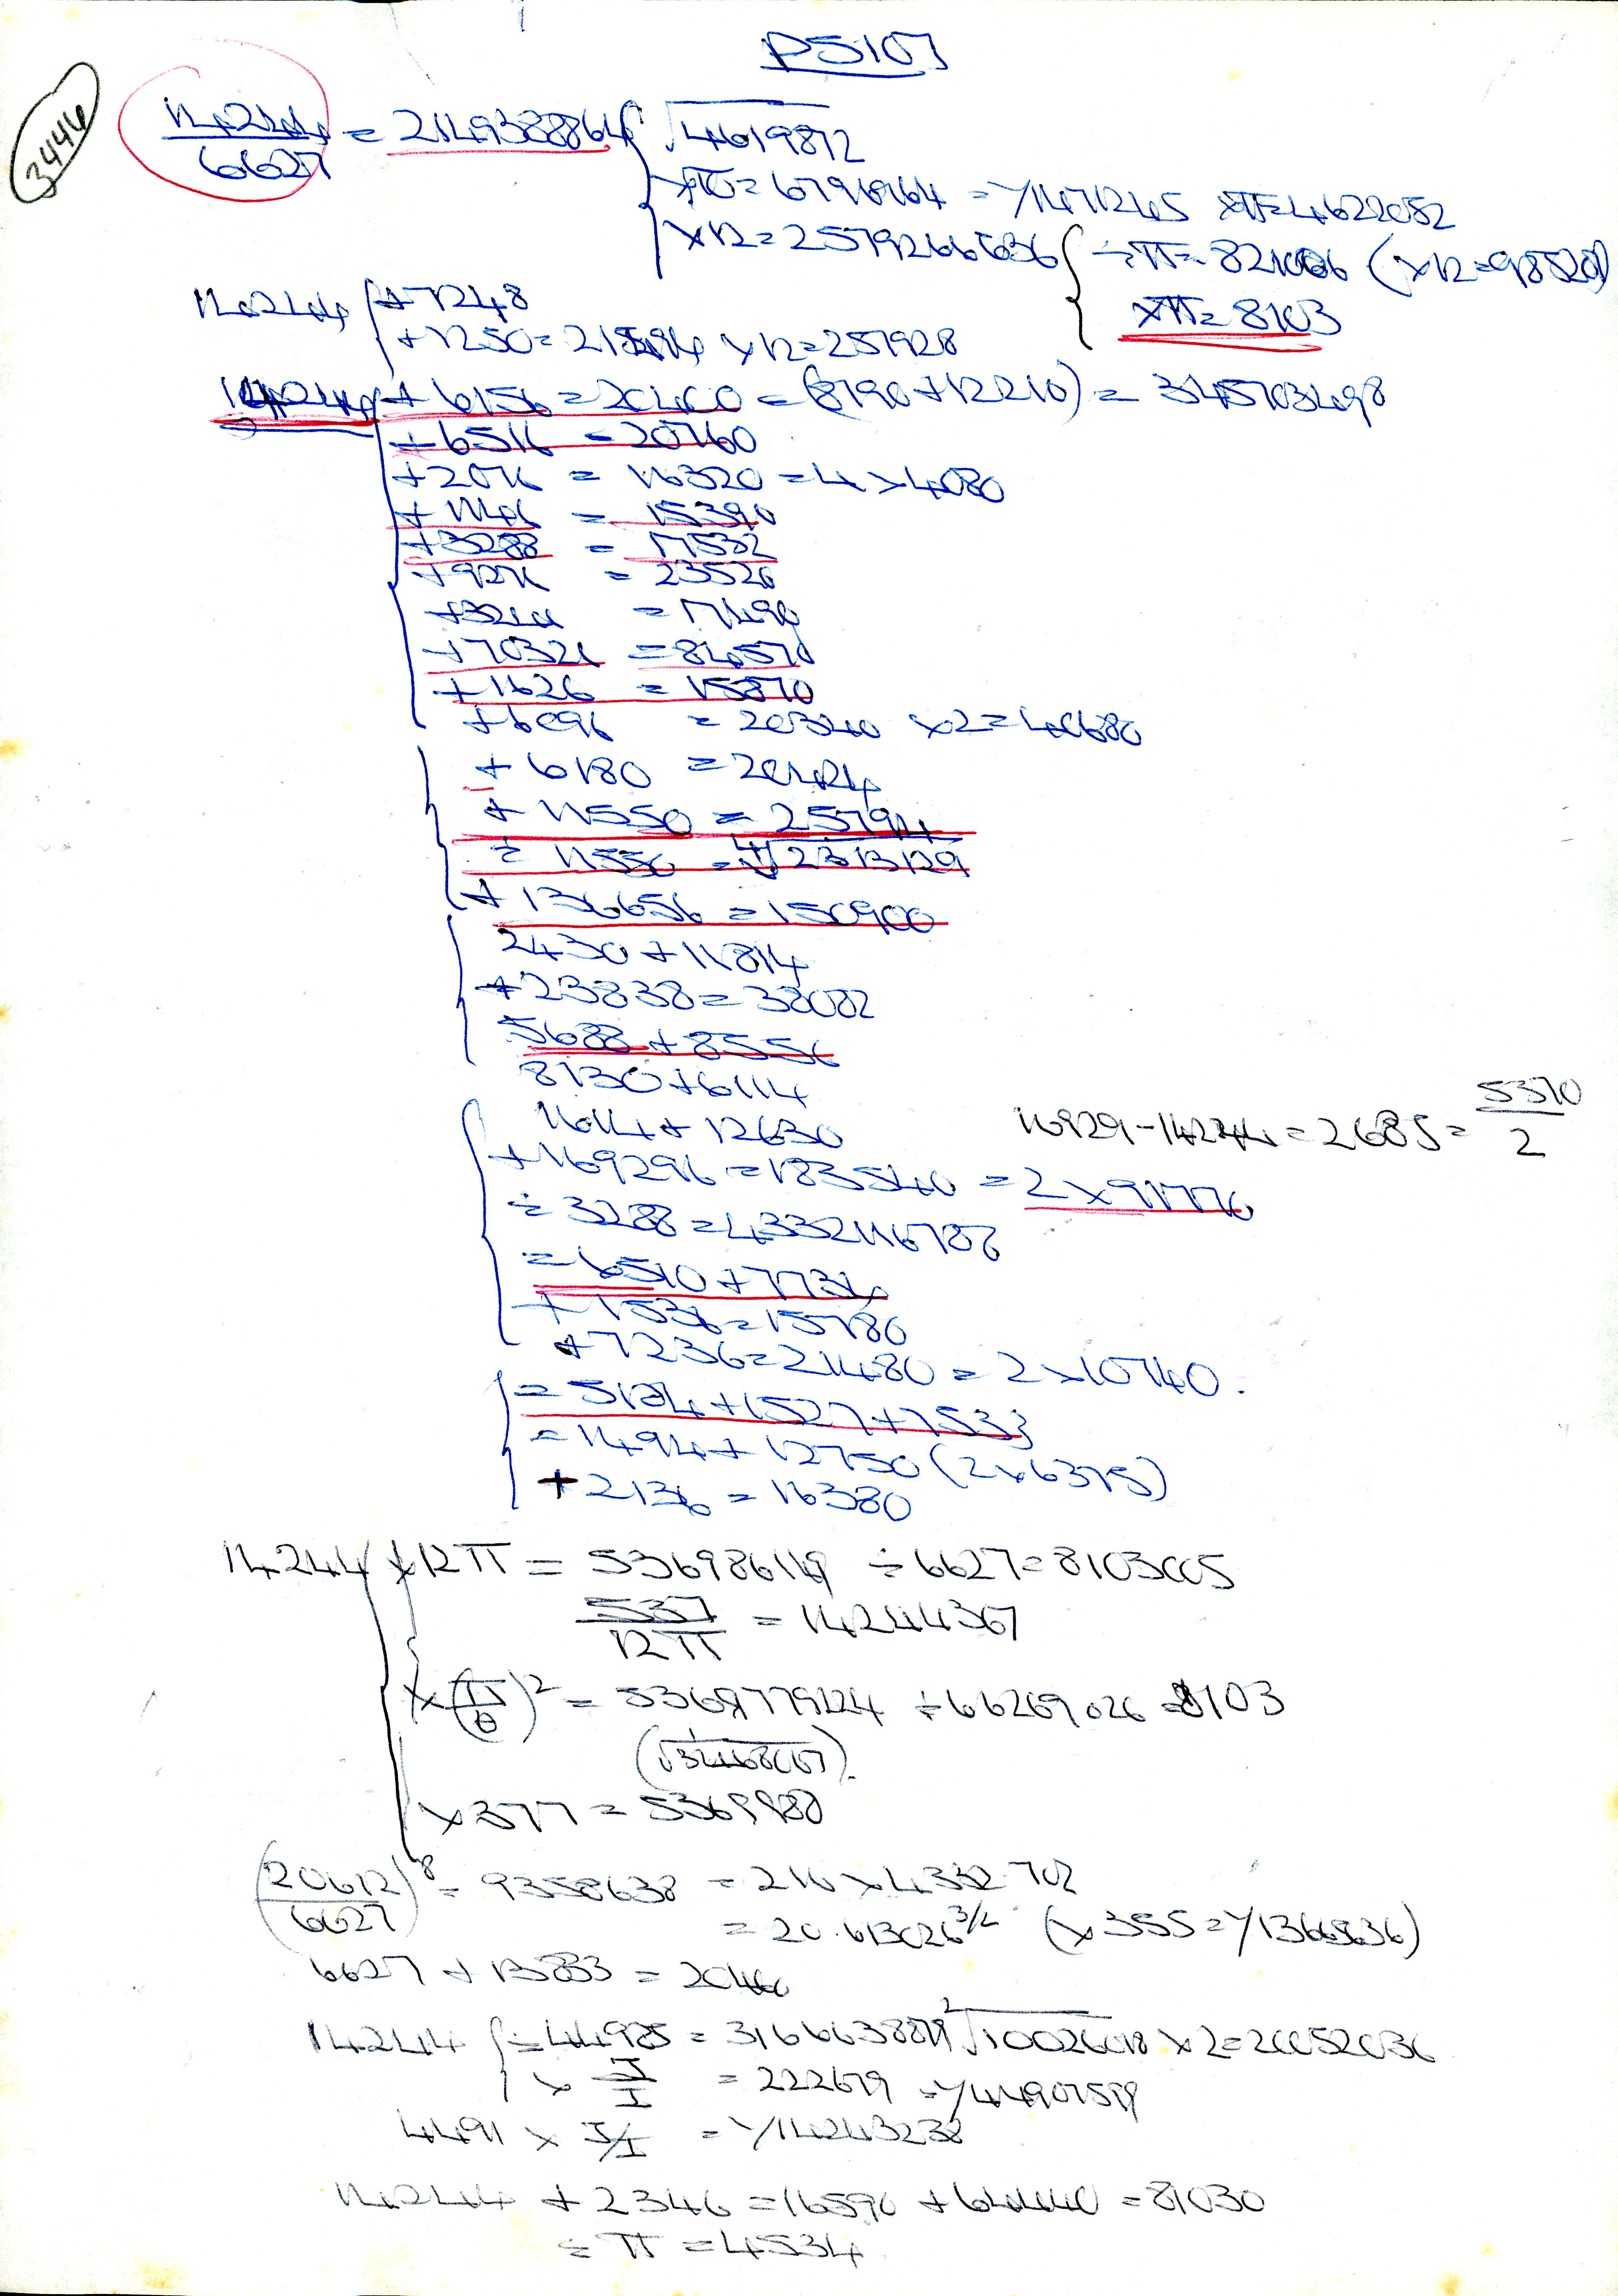 P5107
3446
14244/6627 = 2149388864 { √4619872
×π = 6791764 = 1/1471245 ×π = 4622052
×12 = 2579266636 { ÷π = 821006 (×12 = 98520)
×π = 8103
14244 { + 7248
+ 7250 = 21494 ×12 = 257928
14244 { + 6156 = 20400 = (8190 + 12210) = 3145703498
+ 6516 = 20760
+ 2076 = 16320 = 4 × 4080
+ 1146 = 15390
+ 3288 = 17532
+ 9276 = 23520
+ 3246 = 17490
+ 70326 = 84570
+ 1626 = 15870
+ 6096 = 20340 ×2 = 40680
+ 6180 = 20424
+ 11550 = 25794
÷ 11550 = ∜2313129
+ 136656 = 150900
2430 + 11814
+ 23838 = 38082
5688 + 8556
8130 + 6114
1614 + 12630
16929 - 14244 = 2685 = 5370/2
+ 169296 = 183540 = 2 × 91770
÷ 3288 = 4332116788
= 6510 + 7734
+ 1536 = 15780
+ 7236 = 21480 = 2 × 10740.
= 5184 + 1527 + 7533
= 1494 + 12750 (2 × 6375)
+ 2136 = 16380
14244 { × 12π = 536986119 ÷ 6627 = 8103005
537/12π = 14244367
×( /θ)² = 5369779124 ÷ 66269026 = 8103
×377 = 5369988
(20612/6627)⁸ = 9358638 = 216 × 4332.702
= 20.613026^3/2 (×355 = 1/1366836)
6627 + 13833 = 20460
14244 { ÷ 44985 = 3166638879 ²√10026018 ×2 = 20052036
× J/I = 222679 = 1/44907599
4491 × J/I = 1/14243238
14244 + 2346 = 16590 + 64440 = 81030
÷ π = 4534